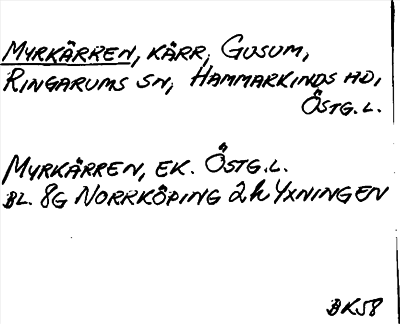 MYRKÄRREN, KÄRR, GUSUM,
RINGARUMS SN, HAMMARKINDS HD,
ÖSTG.L.
MYRKÄRREN, EK. ÖSTG.L.
BL. 8G NORRKÖPING 2h YXNINGEN
BK58